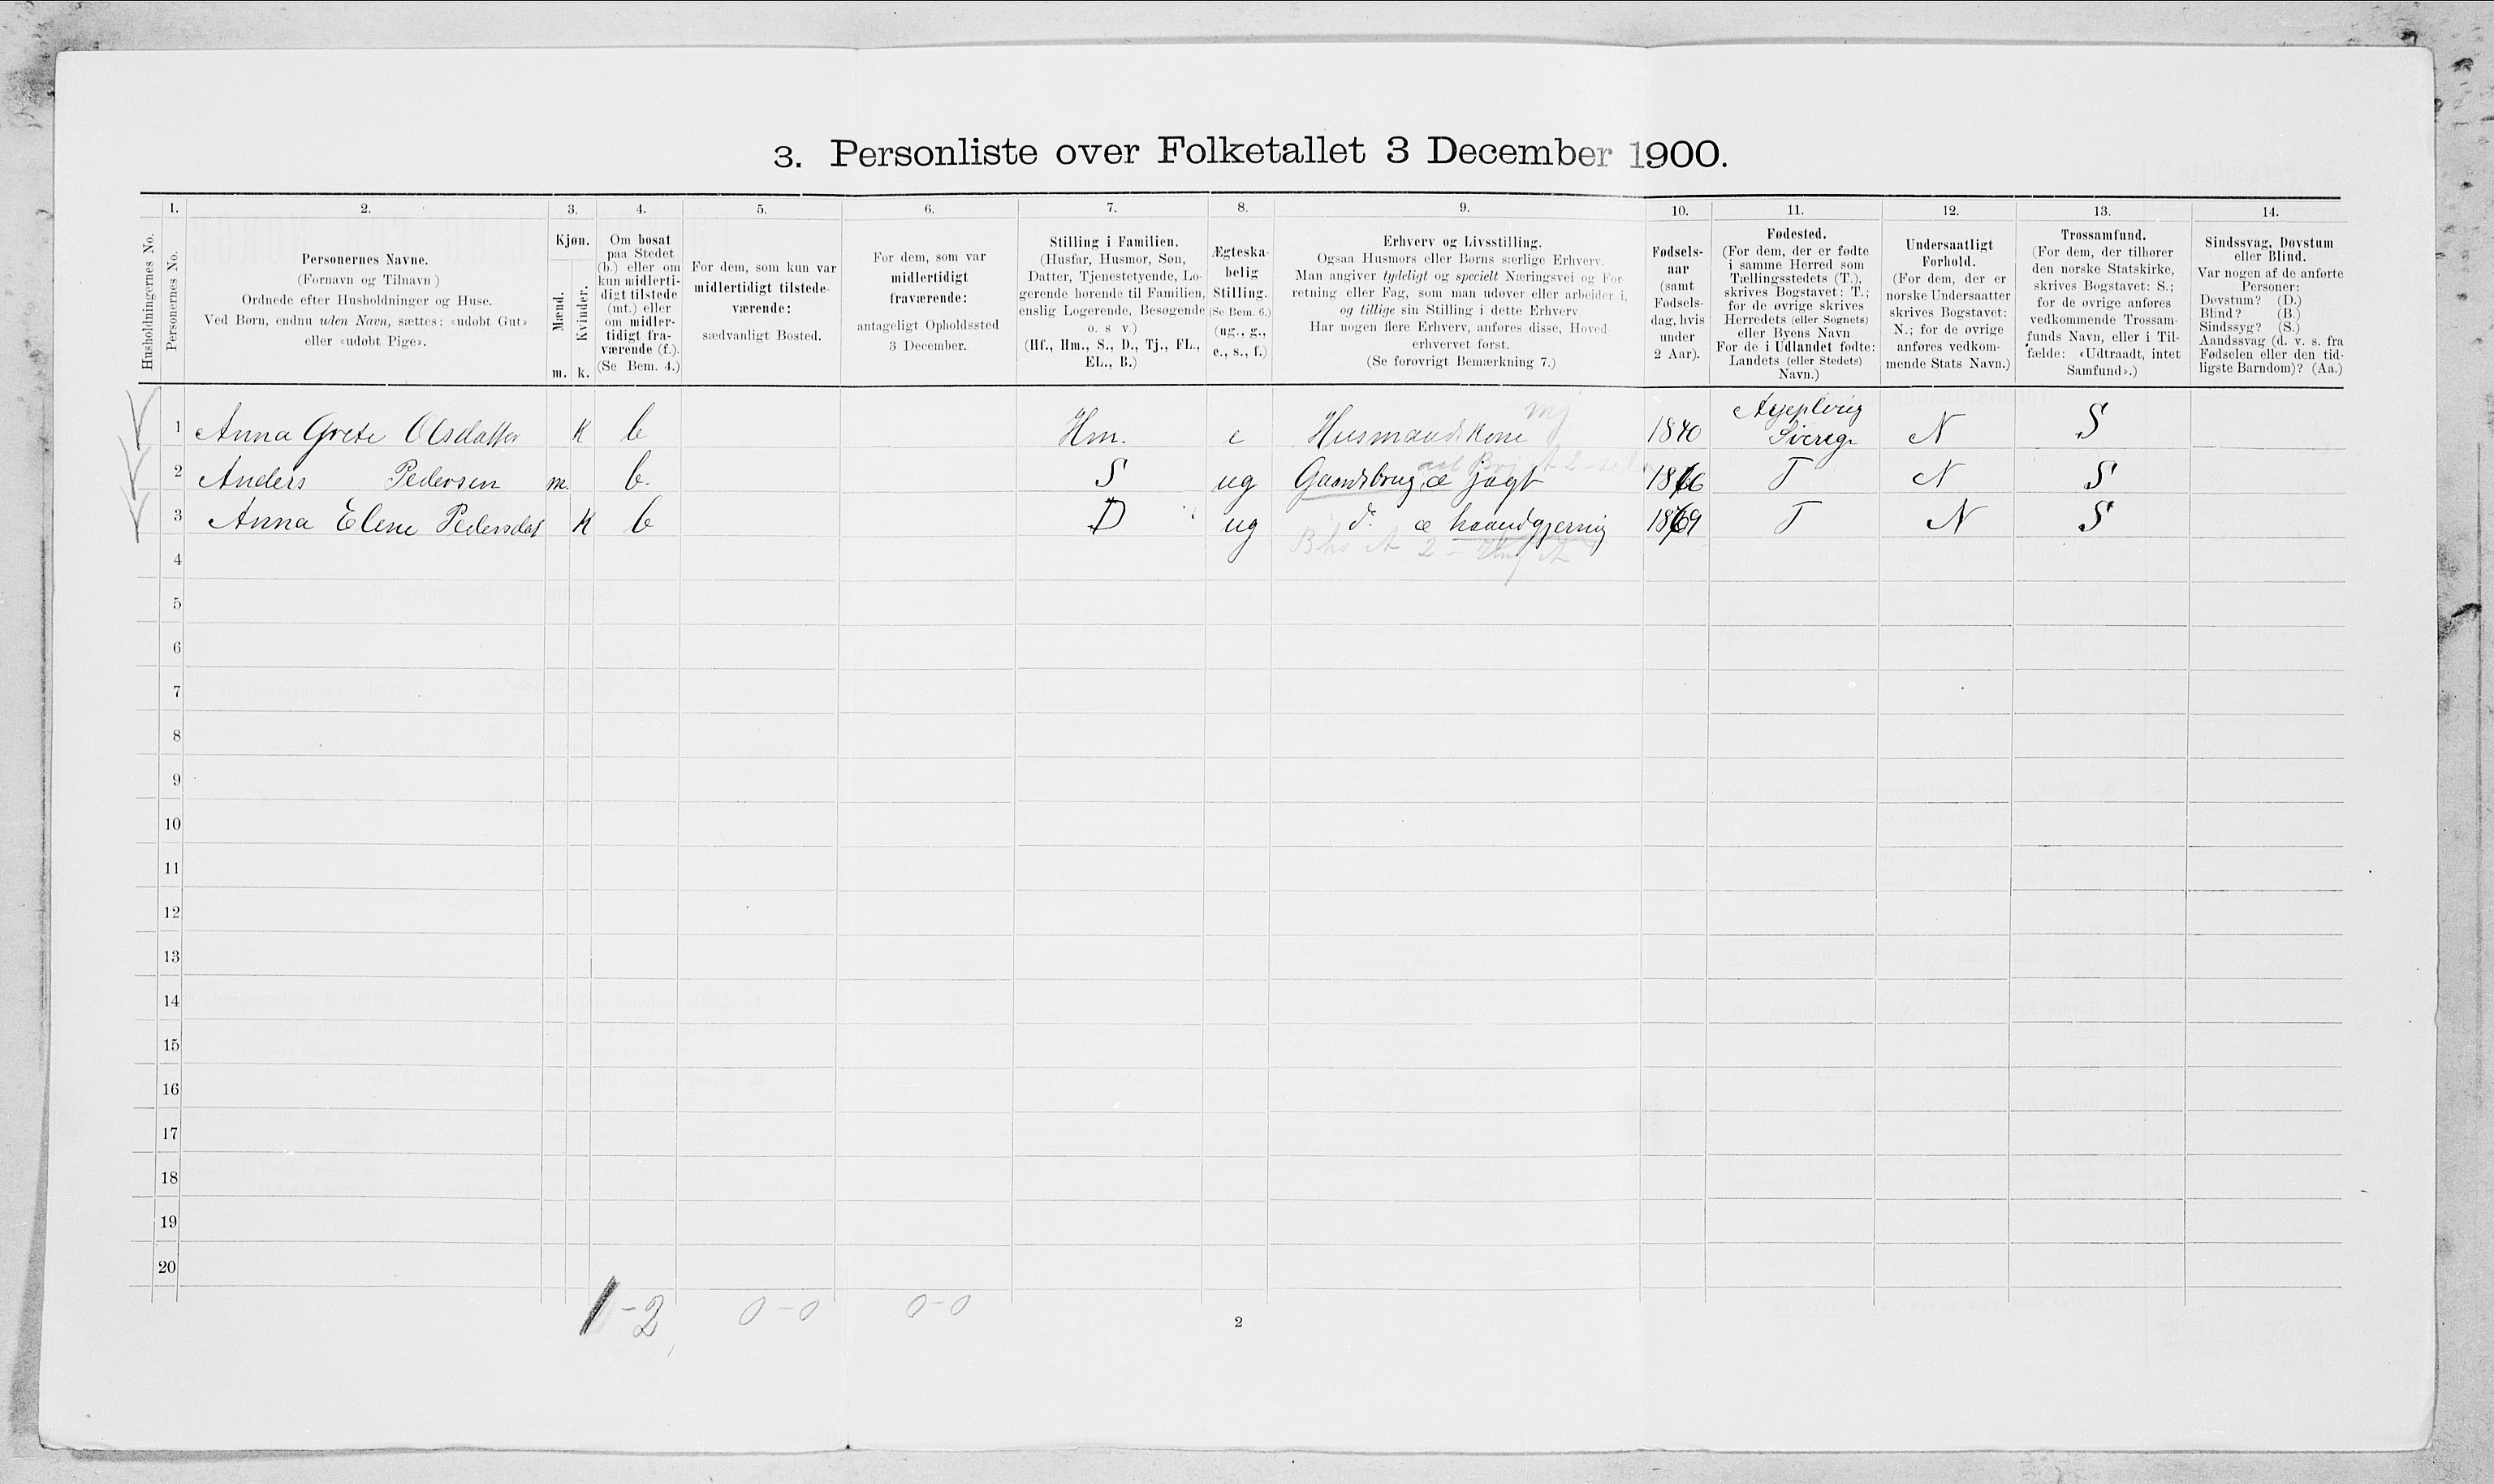 3. Personliste over Folketallet 3 December 1900.
1. 2. 3. 4. 5. 6. 7. 8. 9. 10. 11. 12. 13. 14.
Husholdningernes No.
Personernes No.
Personernes Navne.
(Fornavn og Tilnavn)
Ordnede efter Husholdninger og Huse.
Ved Børn, endnu uden Navn, sættes: «udøbt Gut»
eller «udøbt Pige».
Kjøn.
Mænd.
Kvinder.
m. k.
Om bosat
paa Stedet
(b.) eller om
kun midlerti-
digt tilstede
(mt.) eller
om midler-
tidigt fra-
værende (f.).
(Se Bem. 4.)
For dem, som kun var
midlertidigt tilstede-
værende:
sædvanligt Bosted.
For dem, som var
midlertidigt
fraværende:
antageligt Opholdssted
3 December.
Stilling i Familien.
(Husfar, Husmor, Søn,
Datter, Tjenestetyende, Lo-
gerende hørende til Familien,
enslig Logerende, Besøgende
o. s v.)
(Hf., Hm., S., D., Tj., FL.,
EL., B.)
Ægteska-
belig
Stilling.
(Se Bem. 6.)
(ug., g.,
e., s., f.)
Erhverv og Livsstilling.
Ogsaa Husmors eller Børns særlige Erhverv.
Man angiver tydeligt og specielt Næringsvei og For-
retning eller Fag, som man udøver eller arbeider i,
og tillige sin Stilling i dette Erhverv
Har nogen flere Erhverv, anføres disse, Hoved-
erhvervet først.
(Se forøvrigt Bemærkning 7.)
Fødsels-
aar
(samt
Fødsels-
dag, hvis
under
2 Aar).
Fødested.
(For dem, der er fødte
i samme Herred som
Tællingsstedets (T.),
skrives Bogstavet: T.;
for de øvrige skrives
Herredets (eller Sognets)
eller Byens Navn
For de i Udlandet fødte:
Landets (eller Stedets)
Navn.)
Undersaatligt
Forhold.
(For dem, der er
norske Undersaatter
skrives Bogstavet:
N.; for de øvrige
anføres vedkom-
mende Stats Navn.)
Trossamfund.
(For dem, der tilhører
den norske Statskirke,
skrives Bogstavet: S.;
for de øvrige anføres
vedkommende Trossam-
funds Navn, eller i Til-
fælde: «Udtraadt, intet
Samfund».)
Sindssvag, Døvstum
eller Blind.
Var nogen af de anførte
Personer:
Døvstum? (D.)
Blind? (B.)
Sindssyg? (S.)
Aandssvag (d. v. s. fra
Fødselen eller den tid-
ligste Barndom)? (Aa.)
1 Anna Grete Olsdatter K b Hm. e Husmandskone 1840 Sverige N S
2 Anders Pedersen m. b. S ug Gaardsbrug, & jagt 1866 T N S
3 Anna Elene Pedersdat K b D ug d. & haandgjernig 1869 T N S
4
5
6
7
8
9
10
11
12
13
14
15
16
17
18
19
20
1-2 0-0 0-0
2